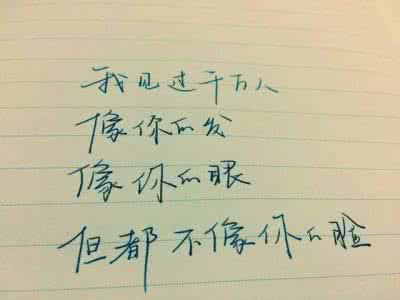 我见过千万人
像你的发
像你的眼
但都不像你的脸